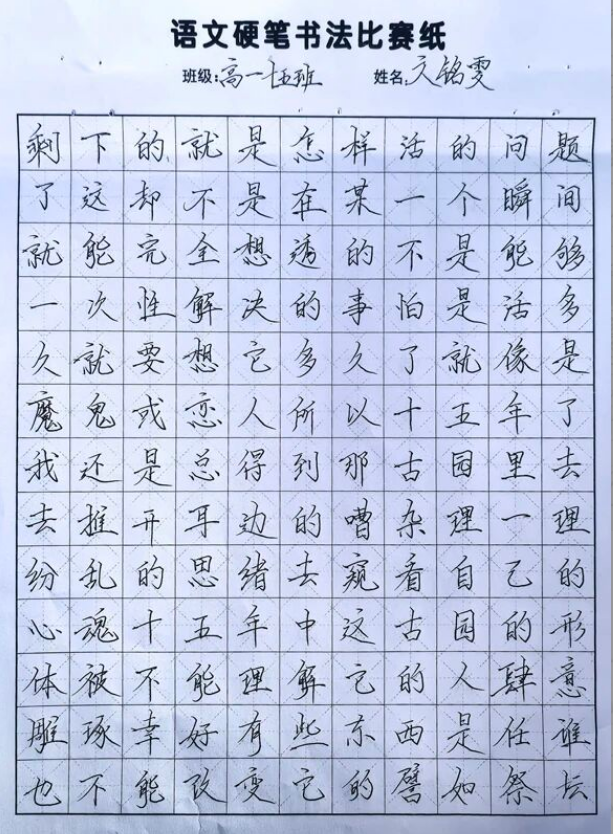 语文硬笔书法比赛纸
班级:高一十五班 姓名:文铭雯
剩下的就是怎样活的问题
了这却不是在某一个瞬间
就能完全想透的不是能够
一次性解决的事怕是活多
久就要想它多久了就像是
魔鬼或恋人所以十五年了
我还是总得到那古园里去
去推开耳边的嘈杂理一理
纷乱的思绪去窥看自己的
心魂十五年中这古园的形
体被不能理解它的人肆意
雕琢幸好有些东西是任谁
也不能改变它的譬如祭坛